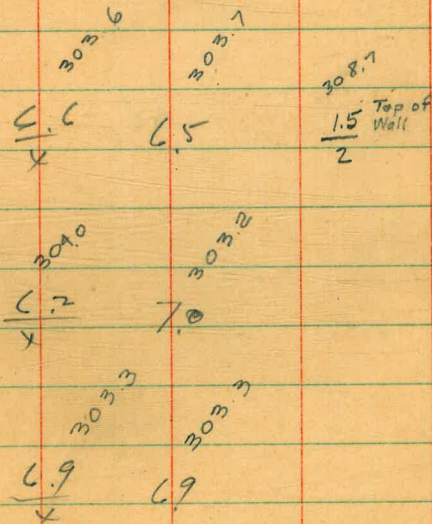 303.6 303.7 308.7
6.6 6.5 1.5 Top of
Wall
x 2
304.0 303.2
6.2 7.0
x
303.3 303.3
6.9 6.9
x